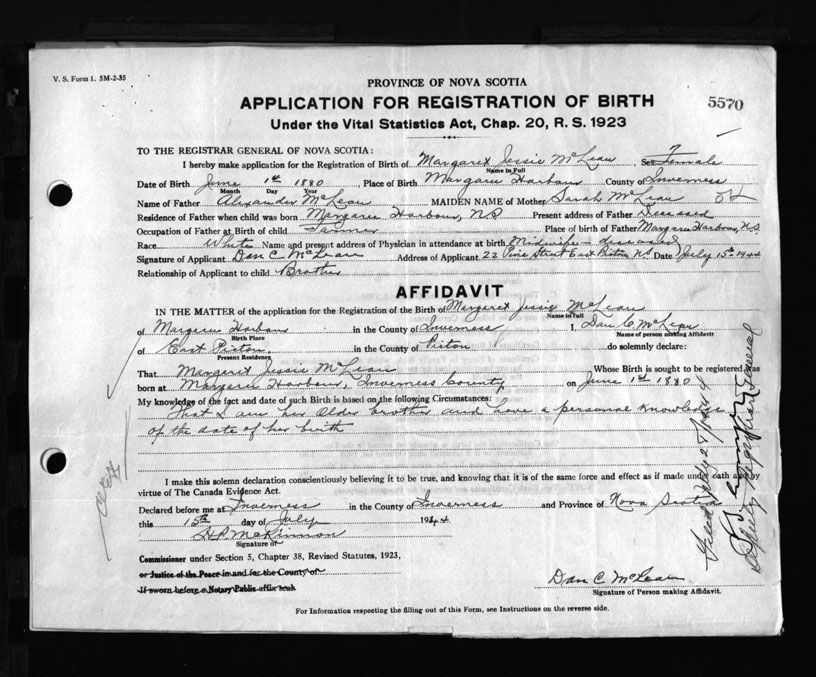 V. S. Form 1. 5M-2-35
PROVINCE OF NOVA SCOTIA
APPLICATION FOR REGISTRATION OF BIRTH
5570
Under the Vital Statistics Act, Chap. 20, R. S. 1923
TO THE REGISTRAR GENERAL OF NOVA SCOTIA:
I hereby make application for the Registration of Birth of Margaret Jessie McLean, Sex Female
Name in Full
Date of Birth June 1st 1880, Place of Birth Margaree Harbour County of Inverness
Month Day Year
Name of Father Alexander McLean MAIDEN NAME of Mother Sarah McLean
Residence of Father when child was born Margaree Harbour, N.S. Present address of Father Deceased
Occupation of Father at Birth of child Farmer Place of birth of Father Margaree Harbour, N.S.
Race White Name and present address of Physician in attendance at birth Midwife - deceased
Signature of Applicant Dan C McLean Address of Applicant 22 Pine Street East Pictou N.S. Date July 15th 1944
Relationship of Applicant to child Brother
AFFIDAVIT
IN THE MATTER of the application for the Registration of the Birth of Margaret Jessie McLean
Name in full
of Margaree Harbour in the County of Inverness I, Dan C. McLean
Birth Place Name of person making Affidavit
of East Pictou, in the County of Pictou do solemnly declare:
Present Residence
That Margaret Jessie McLean Whose Birth is sought to be registered was
born at Margaree Harbour, Inverness County on June 1st 1880
My knowledge of the fact and date of such Birth is based on the following Circumstances:
That I am her Older brother and have a personal knowledge
of the date of her birth
I make this solemn declaration conscientiously believing it to be true, and knowing that it is of the same force and effect as if made under oath and by
virtue of The Canada Evidence Act.
Declared before me at Inverness in the County of Inverness and Province of Nova Scotia
this 15th day of July 1944
H.P. McKinnon
Signature of
Commissioner under Section 5, Chapter 38, Revised Statutes, 1923,
or Justice of the Peace in and for the County of
If sworn before a Notary Public affix seal
Dan C McLean
Signature of Person making Affidavit.
For Information respecting the filling out of this Form, see Instructions on the reverse side.
Filed July 27/1944
Deputy Registrar General